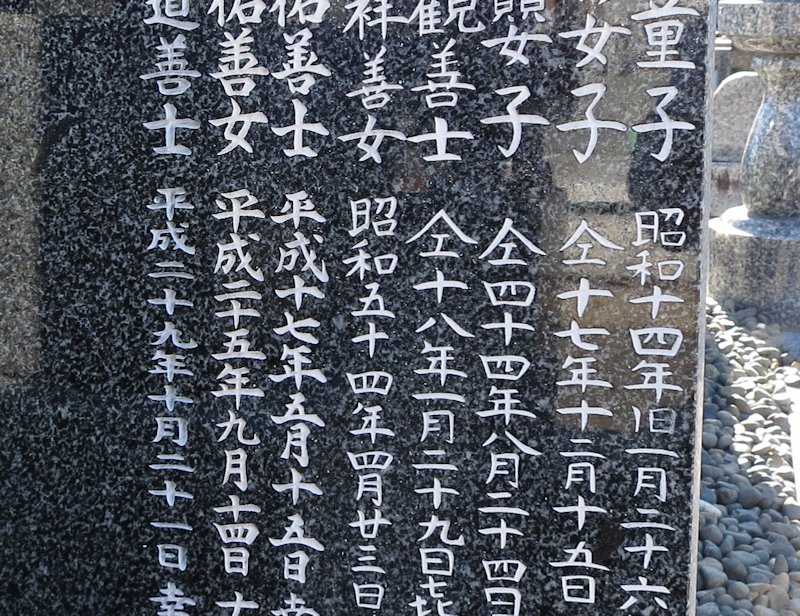 童子 昭和十四年旧一月二十六
女子 仝十七年十二月十五日
女子 仝四十四年八月二十四日
観善士 仝十八年一月二十九日
祥善女 昭和五十四年四月廿三日
佑善士 平成十七年五月十五日
佑善女 平成二十五年九月十四日
道善士 平成二十九年十月二十一日